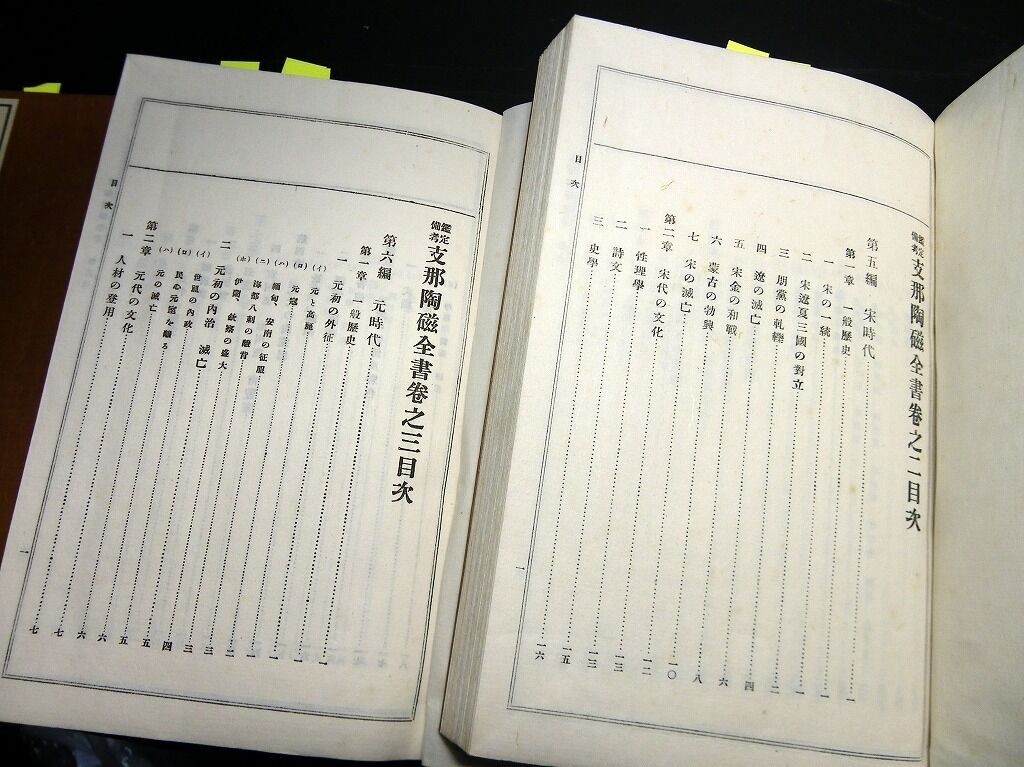 鑑定備考 支那陶磁全書卷之二目次
第五編 宋時代……一
第一章 一般歷史……一
一 宋の一統……一
二 宋遼夏三國の對立……二
三 朋黨の軋轢……四
四 遼の滅亡……六
五 宋金の和戰……八
六 蒙古の勃興……一〇
七 宋の滅亡……一二
第二章 宋代の文化……一三
一 性理學……一三
二 詩文……一五
三 史學……一六
目次
一
鑑定備考 支那陶磁全書卷之三目次
第六編 元時代……一
第一章 一般歷史……一
一 元初の外征……一
(イ) 元と高麗……一
(ロ) 元寇……二
(ハ) 緬甸、安南の征服……三
(ニ) 海都八剌の離背……三
(ホ) 伊蘭、欽察の盛大……四
二 元初の內治 滅亡……五
(イ) 世祖の內政……五
(ロ) 民心元室を離る……六
(ハ) 元の滅亡……六
第二章 元代の文化……七
一 人材の登用……七
目次
一